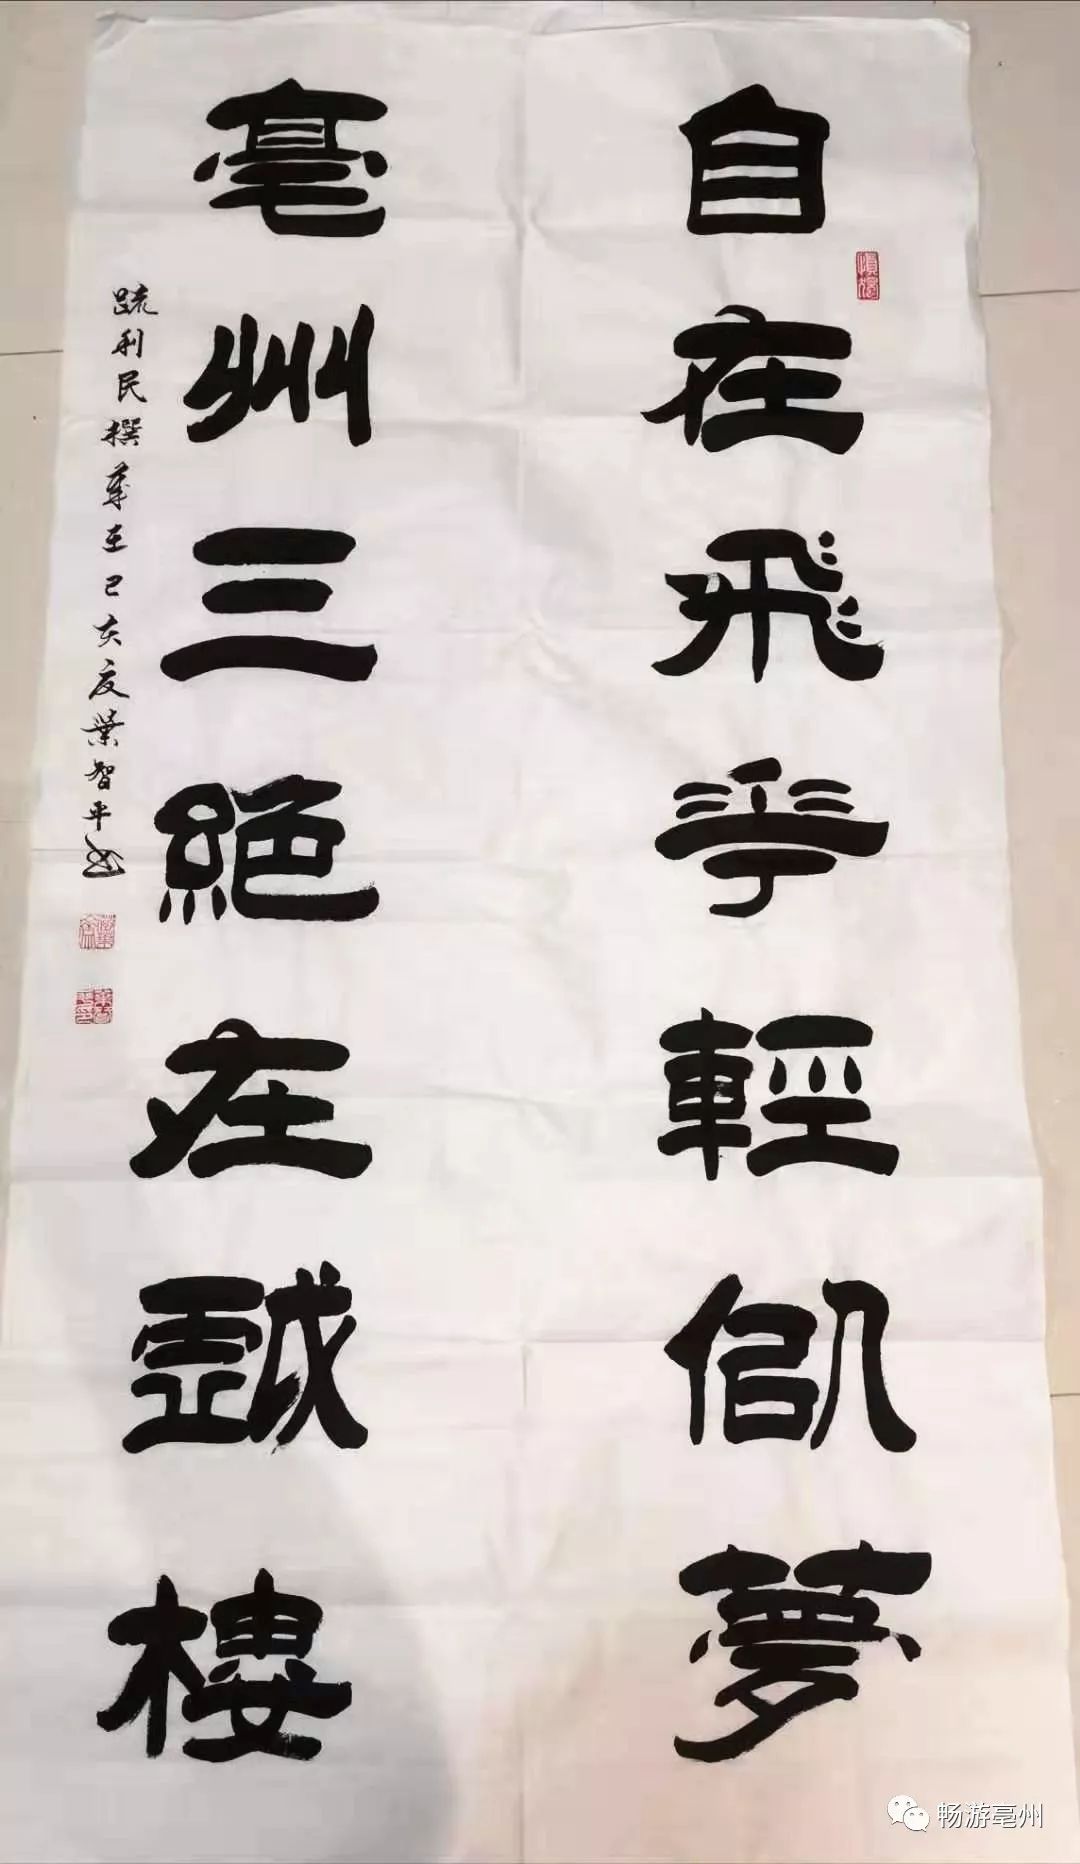 自在飛花輕似夢
亳州三絕在戲樓
疏利民撰聯 己亥夏葉智平書
畅游亳州